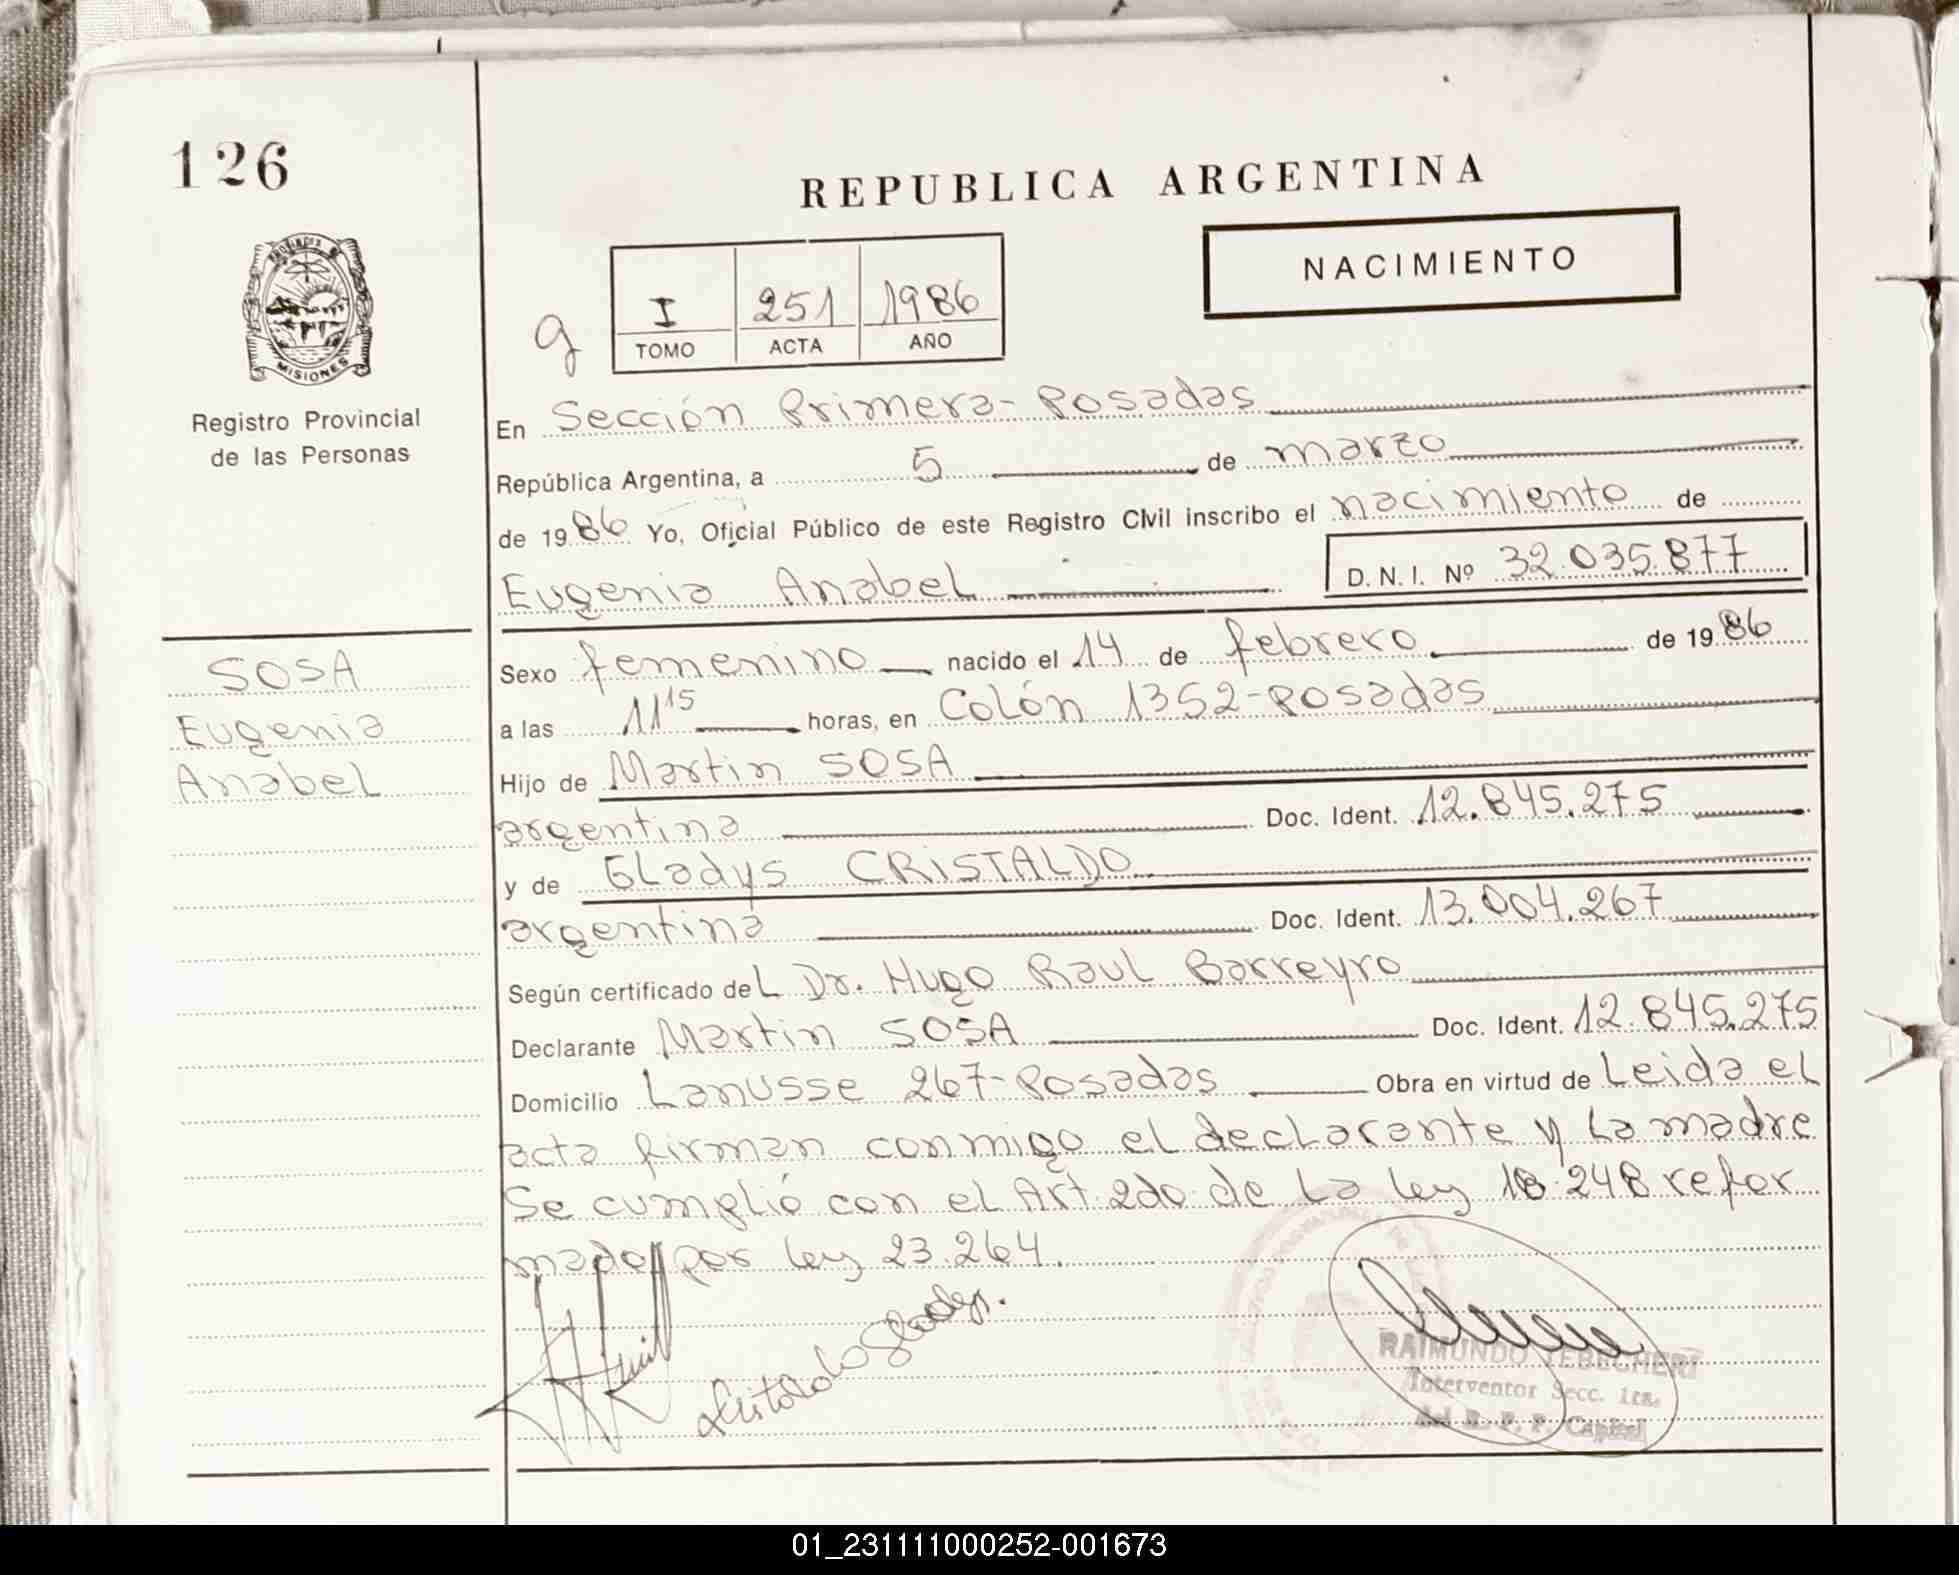 126
PROVINCIA DE
MISIONES
Registro Provincial
de las Personas
SOSA
Eugenia
Anabel
REPUBLICA ARGENTINA
NACIMIENTO
g
I 251 1986
TOMO ACTA AÑO
En Sección Primera - Posadas
República Argentina, a 5 de marzo
de 1986 Yo, Oficial Público de este Registro Civil inscribo el nacimiento de
Eugenia Anabel D. N. I. Nº 32.035.877
Sexo femenino nacido el 14 de febrero de 1986
a las 11 15 horas, en Colón 1352-Posadas
Hijo de Martin SOSA
argentina Doc. Ident. 12.845.275
y de Gladys CRISTALDO
argentina Doc. Ident. 13.004.267
Según certificado del Dr. Hugo Raul Barreyro
Declarante Martin SOSA Doc. Ident. 12.845.275
Domicilio Lanusse 267-Posadas Obra en virtud de Leida el
acta firman conmigo el declarante y la madre
Se cumplió con el Art. 2do. de la ley 18.248 refor
mado por ley 23.264.
RAIMUNDO TEBECHERI
Interventor Secc. 1ra.
del R. P. P. Capital
01_231111000252-001673